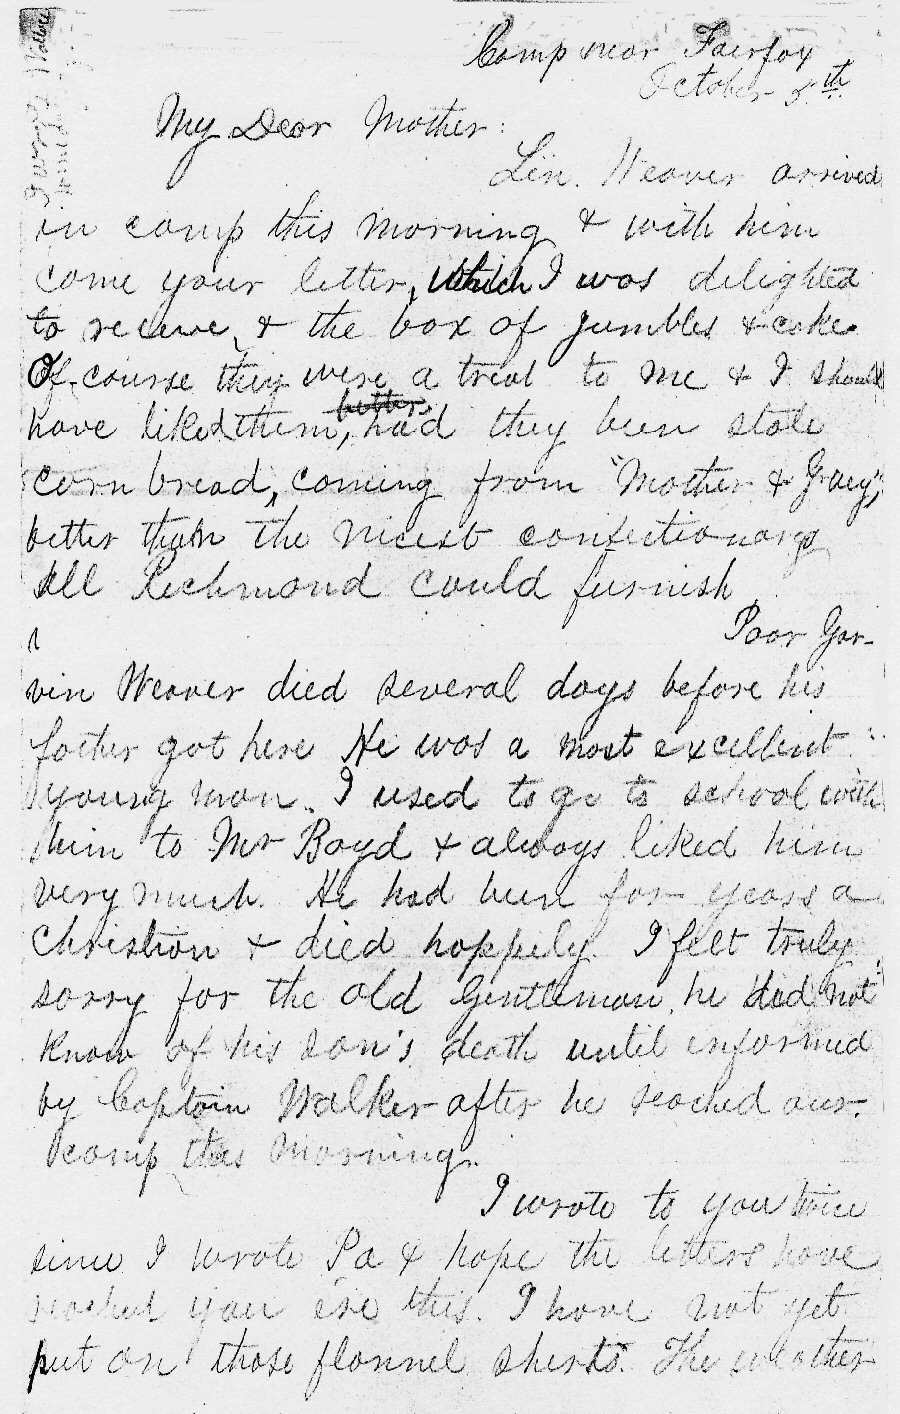 Camp near Fairfax
October 5th
My Dear Mother:
Lin. Weaver arrived
in camp this morning & with him
come your letter, which I was delighted
to receive, & the box of Jumbles & cake.
Of course they were a treat to me & I should
have liked them, better, had they been stale
corn bread, coming from "Mother & Gracy",
better than the nicest confectionary
all Richmond could furnish
Poor Gar-
vin Weaver died several days before his
father got here He was a most excellent
young man. I used to go to school with
him to Mr Boyd & always liked him
very much. He had been for years a
Christian & died happily. I felt truly
sorry for the old Gentleman, he did not
know of his son's death until informed
by Captain Walker after he reached our
camp this morning.
I wrote to you twice
since I wrote Pa & hope the letters have
reached you ere this. I have not yet
put on those flannel shirts. The weather